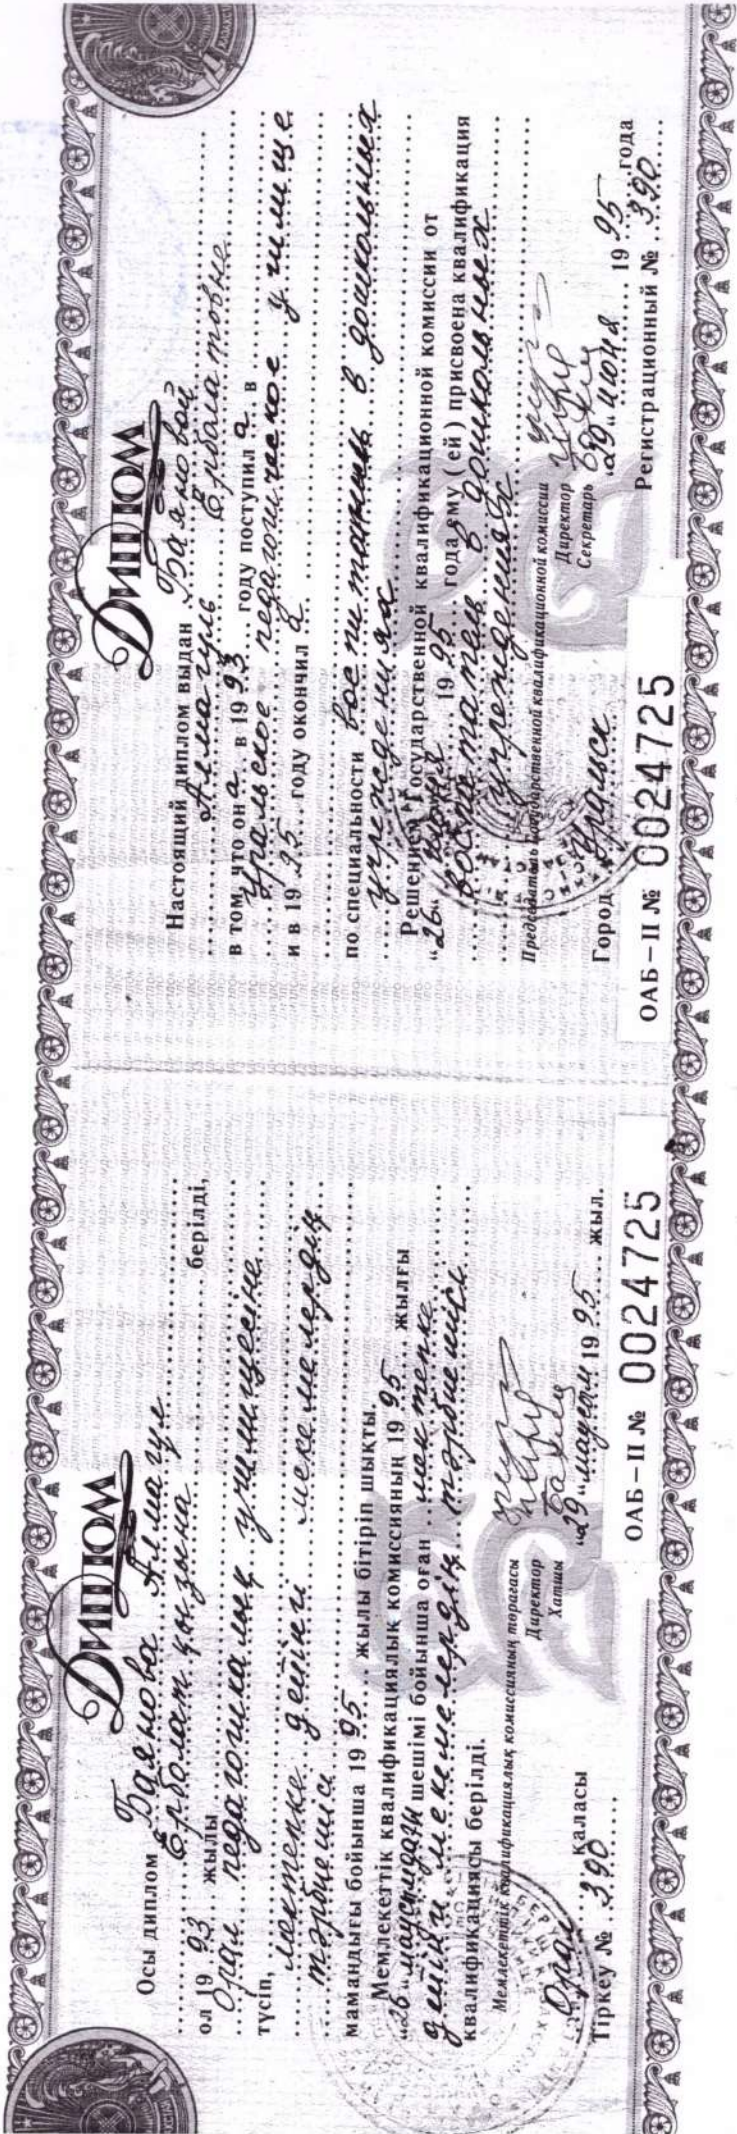 Диплом
Осы диплом Баянова Алмагул
Ерболат қызына берілді,
ол 1993 жылы
Орал педагогикалық училищесіне
түсіп, мектепке дейінгі мекемелердің
тәрбиешісі
мамандығы бойынша 1995 жылы бітіріп шықты.
Мемлекеттік квалификациялық комиссияның 1995 жылғы
"26" маусымдағы шешімі бойынша оған мектепке
дейінгі мекемелердің тәрбиешісі
квалификациясы берілді.
Мемлекеттік квалификациялық комиссияның төрағасы
Директор
Хатшы
Орал қаласы "29" маусым 1995 жыл.
Тіркеу № 390
ОАБ-II № 0024725
Диплом
Настоящий диплом выдан Баяновой
Алмагуль Ерболатовне
в том, что она в 1993 году поступила в
Уральское педагогическое училище
и в 1995 году окончила
по специальности воспитатель в дошкольных
учреждениях
Решением Государственной квалификационной комиссии от
"26" июня 1995 года ему (ей) присвоена квалификация
воспитатель в дошкольных
учреждениях
Председатель государственной квалификационной комиссии
Директор
Секретарь
Город Уральск "29" июня 1995 года
Регистрационный № 390
ОАБ-II № 0024725